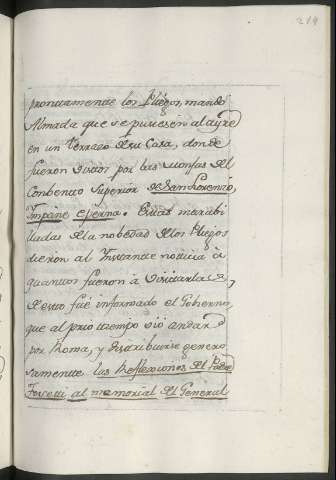 219
prontamente los Pliegos, mandó
Almada que se pusiesen al ayre
en un terrazo de su Casa, donde
fueron vistos por las Monjas del
Combento Superior de San Lorenzo,
Impane e perna. Estas marabi-
lladas de la nobedad de los Pliegos
dieron al Instante noticia à
quantos fueron à visitarlas,
de esto fué informado el Gobierno,
que al prio tiempo vió andar
por Roma, y distribuirse genero-
samente las Reflexiones del Padre
al memorial del General